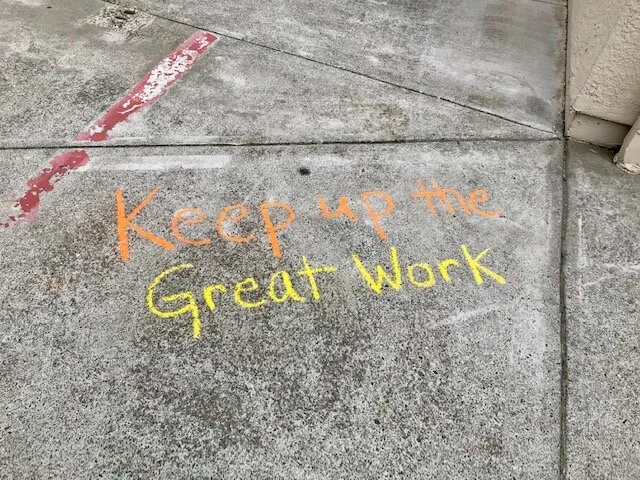 Keep up the
Great Work